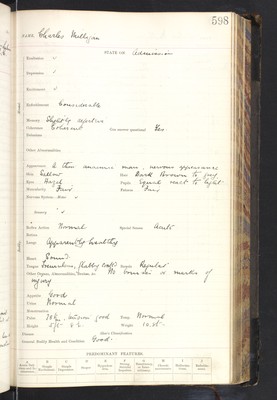 598
NAME Charles Milligan
STATE ON Admission
Exaltation
Depression
Excitement
Enfeeblement Considerable
Memory Slightly defective
Coherent Can answer questions? Yes
Delusions
Other Abnormalities
Appearance A thin anaemic man, nervous appearance
Skin Sallow Hair Dark Brown to grey
Eyes Pupils Equal react to light
Muscularity Fair Fatness Fair
Nervous System: Motor
Sensory
Reflex Action Normal Special Senses Acute
Retinæ
Lungs Apparently healthy
Heart Sound
Tongue Tremulous, flabby
Regular
Other Organs, Abnormalities, No bruises or marks of
injury
Appetite Good
Urine Normal
Menstruation
Pulse good Temp. Normal
Height Weight
Disease
General Bodily Health and Condition Good.
PREDOMINANT FEATURES.